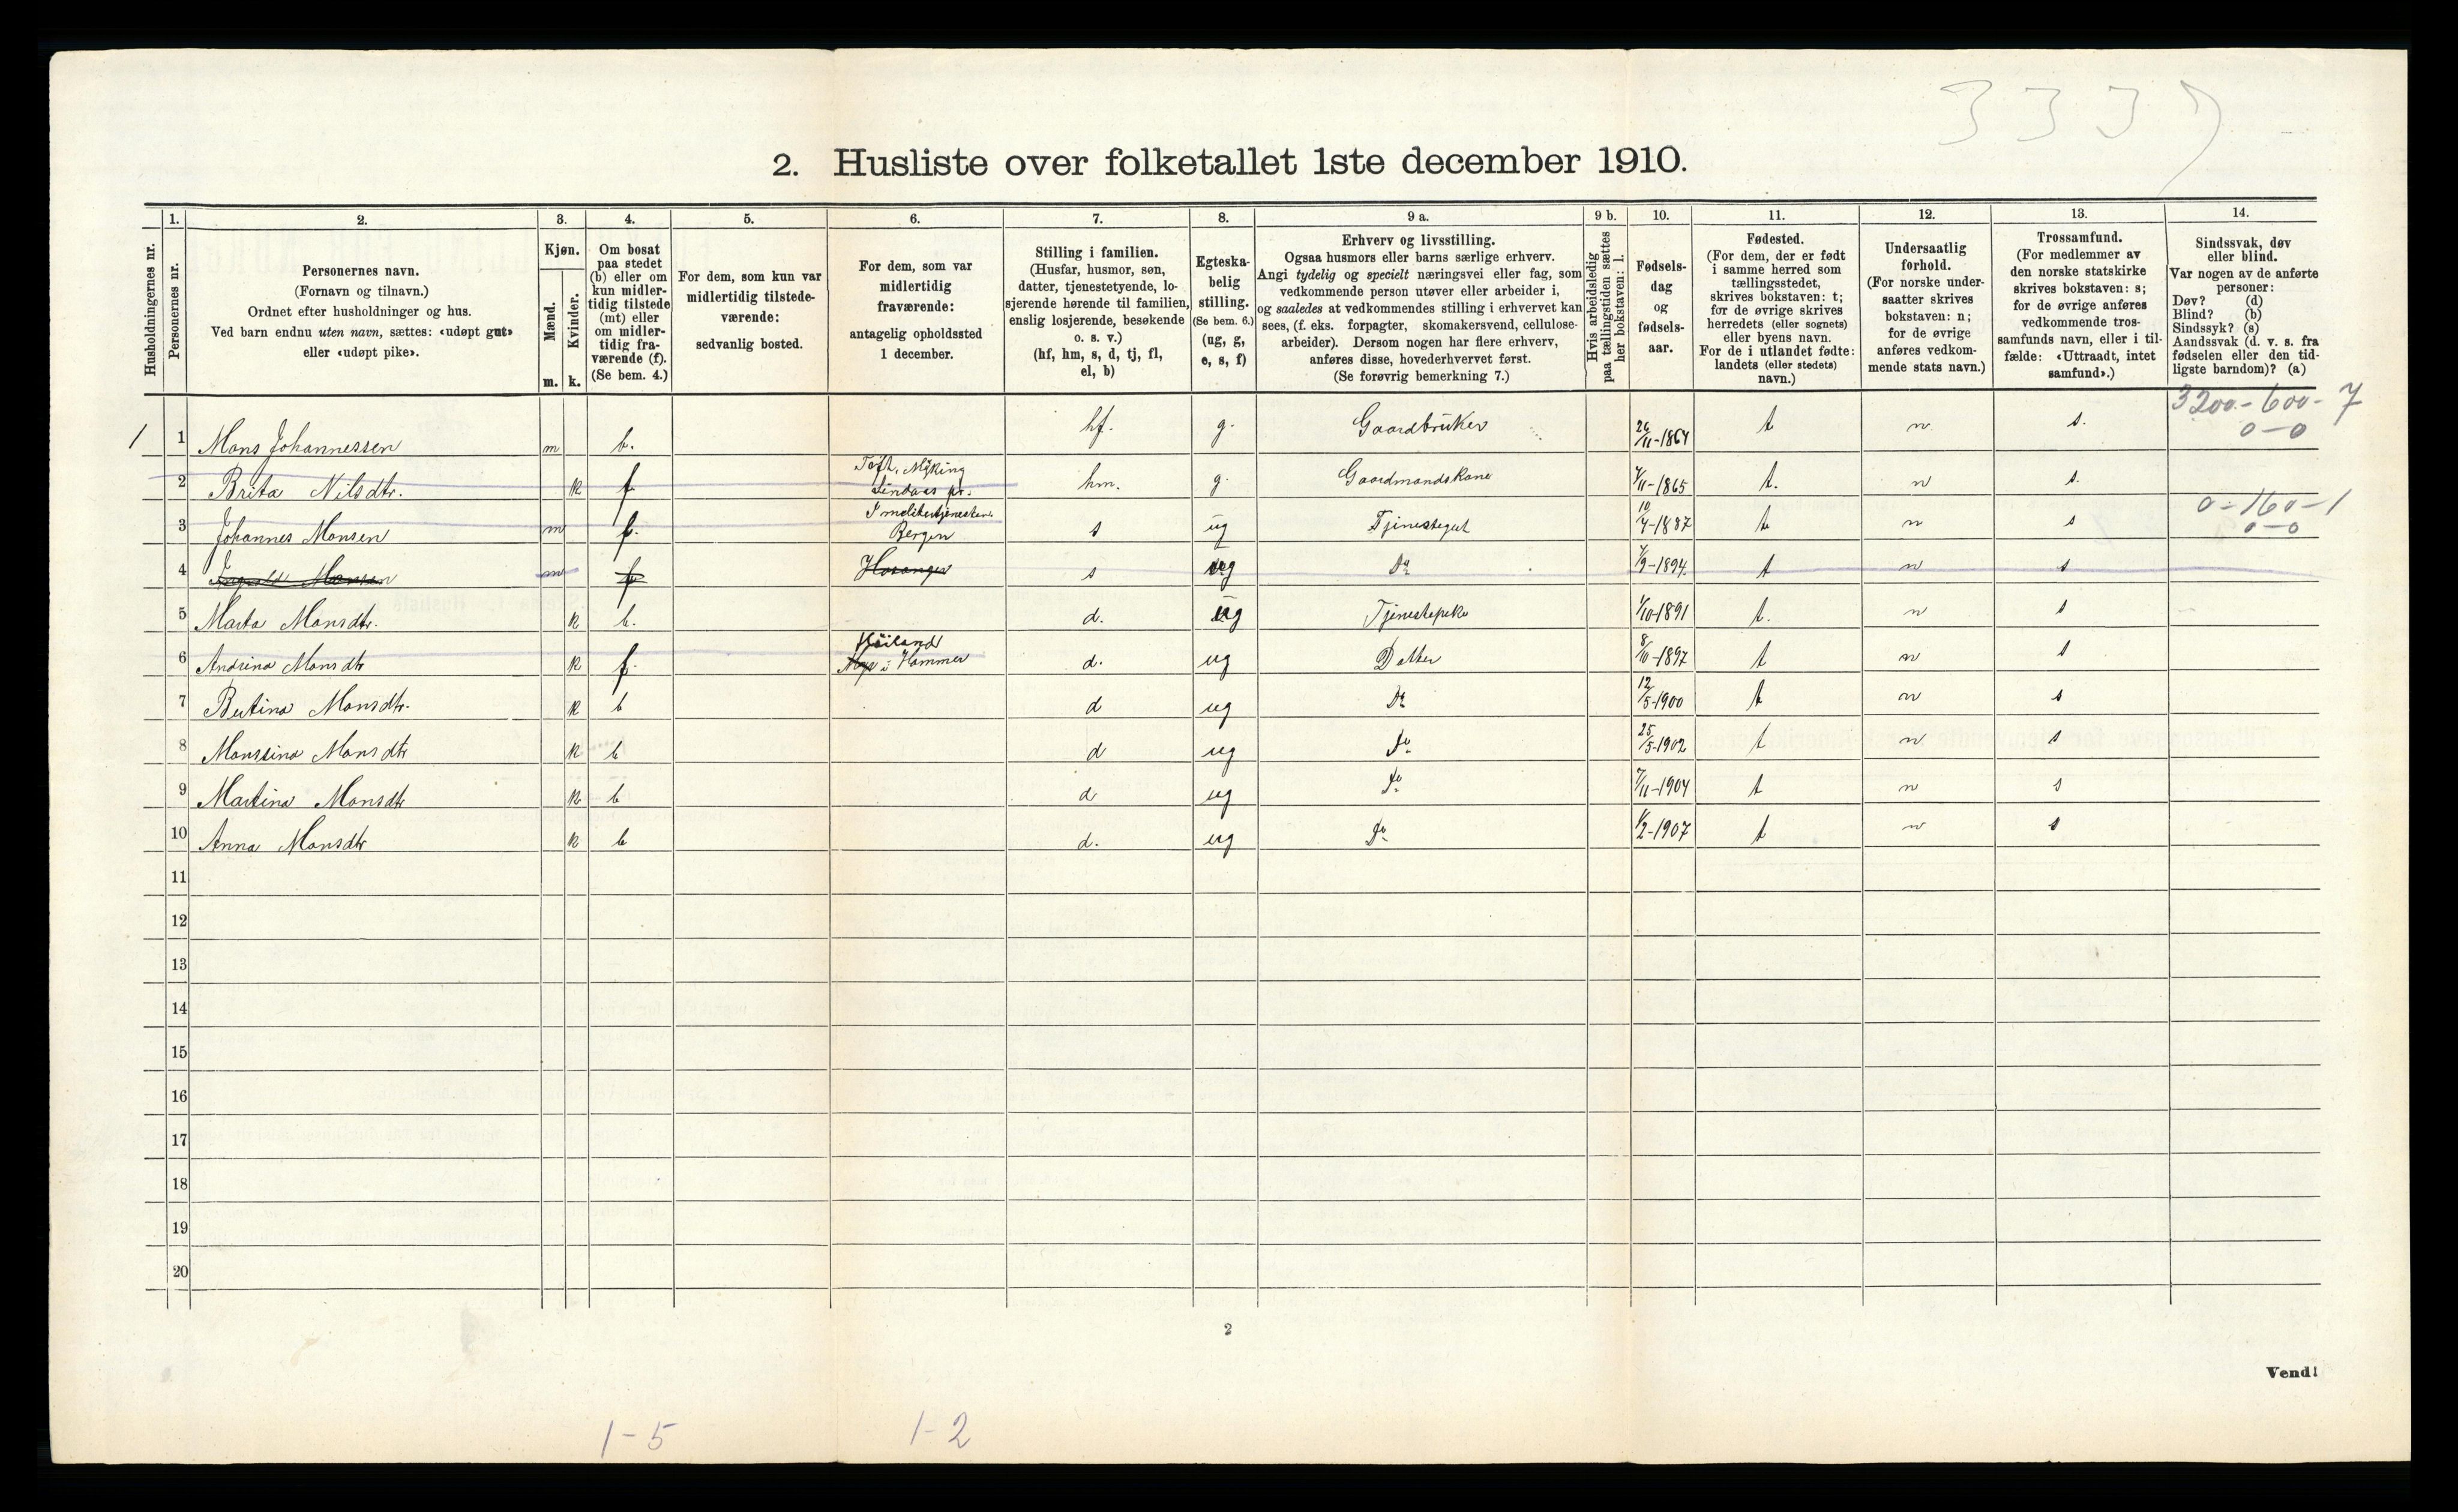 3337
2. Husliste over folketallet 1ste december 1910.
Husholdningernes nr.
1. Personernes nr.
2. Personernes navn. (Fornavn og tilnavn.) Ordnet efter husholdninger og hus. Ved barn endnu uten navn, sættes: «udøpt gut» eller «udøpt pike».
3. Kjøn. Mænd. m. Kvinder. k.
4. Om bosat paa stedet (b) eller om kun midlertidig tilstede (mt) eller om midlertidig fraværende (f). (Se bem. 4.)
5. For dem, som kun var midlertidig tilstedeværende: sedvanlig bosted.
6. For dem, som var midlertidig fraværende: antagelig opholdssted 1 december.
7. Stilling i familien. (Husfar, husmor, søn, datter, tjenestetyende, losjerende hørende til familien, enslig losjerende, besøkende o. s. v.) (hf, hm, s, d, tj, fl, el, b)
8. Egteskabelig stilling. (Se bem. 6.) (ug, g, e, s, f)
9 a. Erhverv og livsstilling. Ogsaa husmors eller barns særlige erhverv. Angi tydelig og specielt næringsvei eller fag, som vedkommende person utøver eller arbeider i, og saaledes at vedkommendes stilling i erhvervet kan sees, (f. eks. forpagter, skomakersvend, cellulosearbeider). Dersom nogen har flere erhverv, anføres disse, hovederhvervet først. (Se forøvrig bemerkning 7.)
9 b. Hvis arbeidsledig paa tællingstiden sættes her bokstaven: l.
10. Fødselsdag og fødselsaar.
11. Fødested. (For dem, der er født i samme herred som tællingsstedet, skrives bokstaven: t; for de øvrige skrives herredets (eller sognets) eller byens navn. For de i utlandet fødte: landets (eller stedets) navn.)
12. Undersaatlig forhold. (For norske undersaatter skrives bokstaven: n; for de øvrige anføres vedkommende stats navn.)
13. Trossamfund. (For medlemmer av den norske statskirke skrives bokstaven: s; for de øvrige anføres vedkommende trossamfunds navn, eller i tilfælde: «Uttraadt, intet samfund».)
14. Sindssvak, døv eller blind. Var nogen av de anførte personer: Døv? (d) Blind? (b) Sindssyk? (s) Aandssvak (d. v. s. fra fødselen eller den tidligste barndom)? (a)
3200-600-7
0-0
1 1 Mons Johannessen m b. hf. g. Gaardbruker 26/11-1864 t n s.
2 Brita Nilsdtr. k f Toft, Myking Lindaas pr. hm. g. Gaardmandskone 4/11-1865 t. n s.
0-160-1
0-0
3 Johannes Monsen m f. I meliketjenesten Bergen s ug Tjenestegut 10/4-1887 t n s
4 Monsen m f Hosanger s ug Do 4/9-1894 t n s
5 Marta Monsdtr. k b. d. ug Tjenestepike 1/10-1891 t. n s
6 Andrina Monsdtr k f. Høiland i Hammer d. ug Datter 8/10-1897 t n s
7 Bertina Monsdtr. k b d ug Do 12/5-1900 t n s
8 Monsina Monsdtr k b d ug Do 25/5-1902 t n s
9 Martina Monsdtr k b d ug Do 7/11-1904 t n s
10 Anna Monsdtr k b d. ug Do 1/2-1907 t n s
11
12
13
14
15
16
17
18
19
20
2
Vend!
1-5 1-2